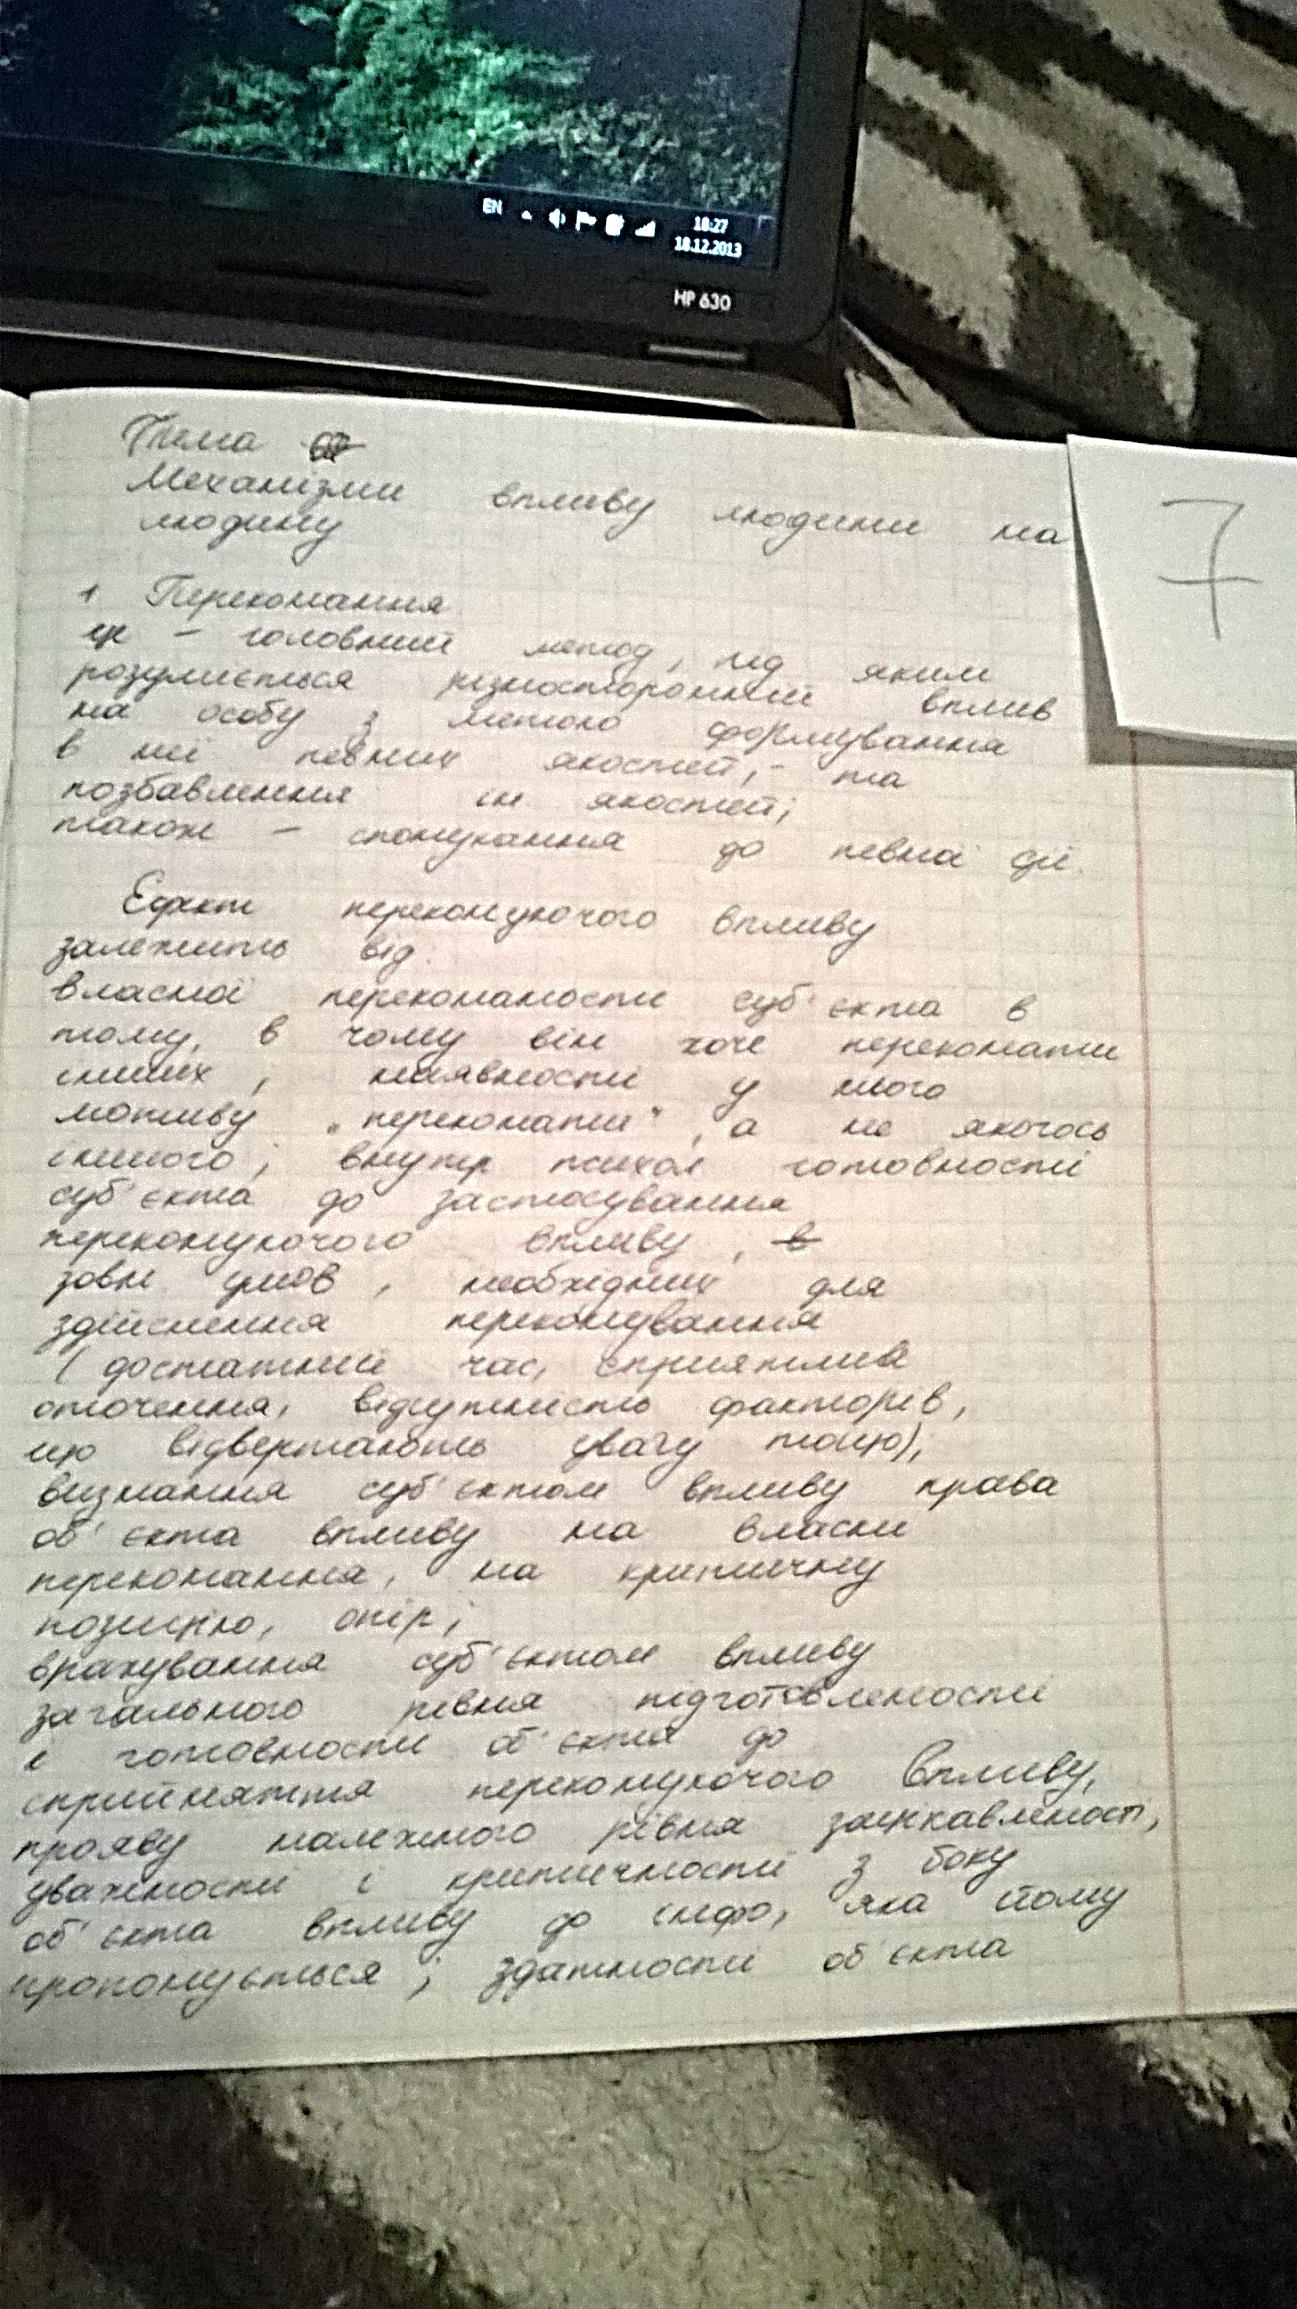 EN
18:27
18.12.2013
HP 630
7
Тема
Механізми впливу людини на
людину
1 Переконання
це – головний метод, під яким
розуміється різносторонній вплив
на особу з метою формування
в неї певних якостей, та
позбавлення ін якостей;
також – спонукання до певної дії.
Ефект переконуючого впливу
залежить від:
власної переконаності суб'єкта в
тому, в чому він хоче переконати
інших; наявності у нього
мотиву „переконати“, а не якогось
іншого; внутр психол готовності
суб'єкта до застосування
переконуючого впливу,
зовн умов, необхідних для
здійснення переконування
(достатній час, сприятливі
оточення, відсутність факторів,
що відвертають увагу тощо);
визнання суб'єктом впливу права
об'єкта впливу на власні
переконання, на критичну
позицію, опір;
врахування суб'єктом впливу
загального рівня підготовленості
і готовності об'єкта до
сприйняття переконуючого впливу,
прояву належного рівня зацікавленості,
уважності і критичності з боку
об'єкта впливу до інфо, яка йому
пропонується; здатності об'єкта